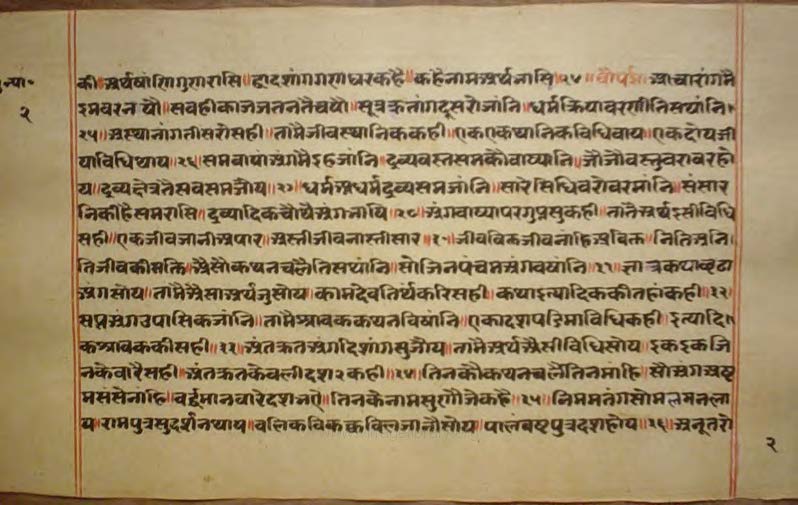 की॥अर्थषांणिगुणरासि॥द्वादशांगगणधरकहै॥कहैनामअर्थनासि॥२४॥चौपई॥आचारांगमै
इमवरनयौ॥सवहीकाजजतनतैचयौ॥सूत्रक्रतांगदूसरोजांनि॥धर्मक्रियावरणीतिसथांनि॥
२५॥अस्थानांगतीसरोसही॥तामैजीवस्थानिककही॥एकएकथानिकविधिवाय॥एकदोयजी
याविधिथाय॥२६॥समवायांअंगमैइहजांनि॥दूव्यवस्तसमकौवाय्यानि॥जौजौवस्तुवरावरहो
य॥दूव्यक्षेत्रतैसवसमजोय॥२७॥धर्मअधर्मदूव्यसमजांनि॥सारेसिधिवरोवरमांनि॥संसार
निकीहैसमरासि॥दूव्यादिकचौथैअंगनायि॥२८॥अंगवाय्यापरगुप्रसुकही॥तातैअर्थइसीविधि
सही॥एकजीवजानौअपार॥अस्तीजीवनास्तीसार॥२९॥जीववक्तिजीवनांहिअवक्ति॥नितिअनि
तिजीवकीभक्ति॥असैोकथनचलैतिसथांनि॥सोजिनपंचमअंगवषांनि॥२१॥ज्ञात्रकथाछठा
अंगसोय॥तामैअैसाअर्थजुसोय॥कामदेवतिर्थकरिसही॥कथाइत्यादिककीतहांकही॥२२॥
सप्तअंगउपासिकजांनि॥तामैश्रावककथनविषांनि॥एकादशपडिमाविधिकही॥इत्यादि
कश्रावककीसही॥२३॥अंतक्रतअंगदिशांगसुजोय॥तामैअर्थअैसीविधिसोय॥इकइकजि
नकैवारैसही॥अंतक्रतकेवलीदश२कही॥२४॥तिनकौकथनचलैतिनमाहि॥सोअंगअष्ट
मसंसेनाहि॥वर्द्धमानवारेदशभऐ॥तिनकेनामसुणौजेकहे॥२५॥निममतंगसोमलमनला
य॥रामपुत्रसुदर्शनथाय॥वलिकविकक्रविलजानौसोय॥पालंबष्टपुत्रदशहोय॥२६॥अनूतरो
२
२